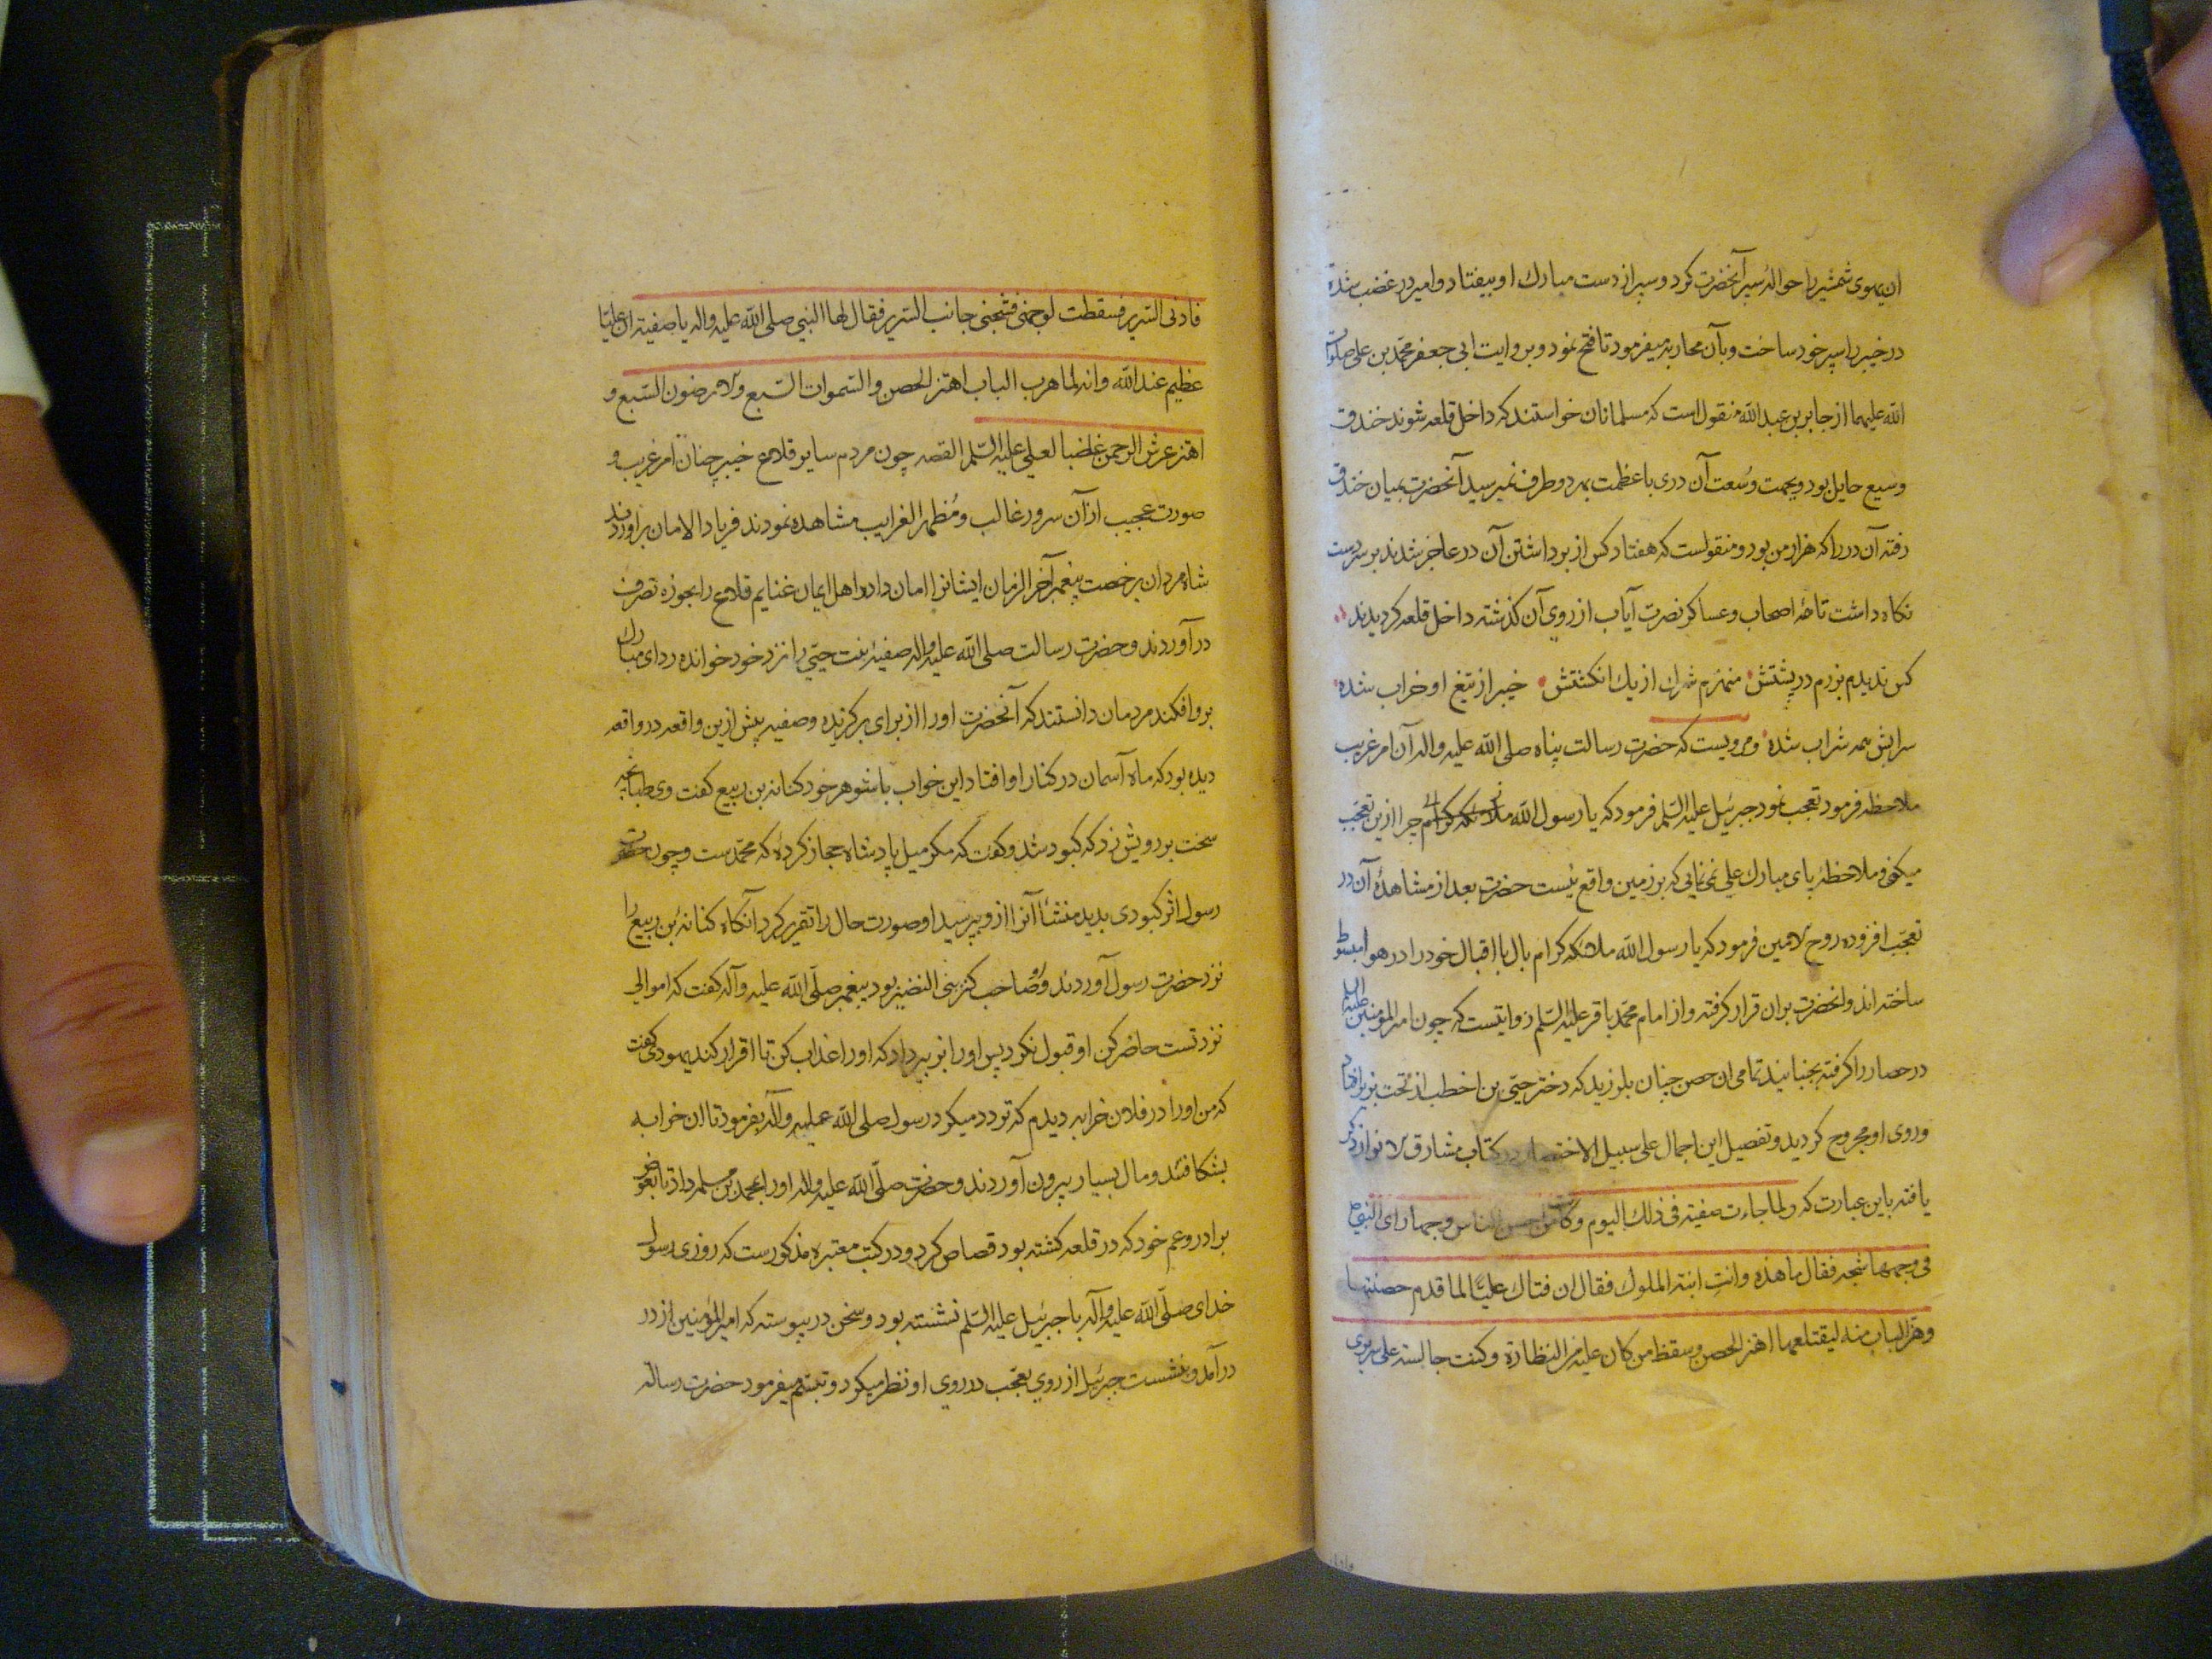 ان یهودی شمشیر را حوالهٔ سپر آنحضرت کرد و سپر از دست مبارک او بیفتاد و امیر در غضب شده
در خیبر را سپر خود ساخت و بآن محاربه میفرمود تا فتح نمود و بروایت ابی جعفر محمد بن علی صلوات
الله علیهما از جابر بن عبدالله منقول است که مسلمانان خواستند که داخل قلعه شوند خندق
وسیع حایل بود و بجهت وسعت آن دری باعظمت بهر دو طرف نمیرسید آنحضرت بمیان خندق
رفته آن در را که هزار من بود و منقولست که هفتاد کس از برداشتن آن در عاجز شدند بر سر دست
نکاه داشت تا اصحاب و عساکر نصرت آیاب از روی آن کذشته داخل قلعه کردیدند
کس ندیدم بزرم در پشتش منهزم از یک انکشتش خیبر از تیغ او خراب شده
سرابش همه شراب شده و مرویست که حضرت رسالت پناه صلی الله علیه واله آن امر غریب
ملاحظه فرمود تعجب نمود جبرئیل علیه السلم فرمود که یا رسول الله ملائکه کرام چرا ازین تعجب
میکنی و ملاحظهٔ پای مبارک علی نمی نمایی که بر زمین واقع نیست حضرت بعد از مشاهدهٔ آن در
تعجب افزوده روح الامین فرمود که یا رسول الله ملائکه کرام بال با اقبال خود را در هوا مبسوط
ساخته اند و انحضرت بران قرار کرفته و از امام محمد باقر علیه السلم روایتست که چون امیر المومنین علیه السلم
در حصار را کرفته بجنبانید تمامی ان حصن چنان بلرزید که دختر حیی بن اخطب از تخت بزیر افتاد
و روی او مجروح کردید و تفصیل این اجمال علی سبیل الاختصار در کتاب مشارق الانوار ذکر
یافته باین عبارت که ولما جاءت صفیة فی ذلک الیوم وکانت من احسن الناس وجها رای النبی
فی وجهها شجه فقال ما هذه وانت ابنة الملوک فقال ان فتاک علیا لما قدم حصنها
وهز الباب منه لیقتلعها اهتز الحصن وسقط من کان علیه من النظارة وکنت جالسة علی سریری
فادنی السریر فسقطت لوجهی فشجنی جانب السریر فقال لها النبی صلی الله علیه واله یا صفیة ان علیا
عظیم عند الله وانه لما هرب الباب اهتز الحصن والسموات السبع والارضون السبع و
اهتز عرش الرحمن غضبا لعلی علیه السلم القصه چون مردم سایر قلاع خیبر چنان امر غریب و
صورت عجیب از آن سرور غالب و مظهر الغرایب مشاهده نمودند فریاد الامان براوردند
شاه مردان برخصت پیغمبر آخر الزمان ایشانرا امان داد و اهل ایمان غنایم قلاع را بحوزه تصرف
درآوردند و حضرت رسالت صلی الله علیه واله صفیه بنت حیی را نزد خود خوانده ردای مبارک
برو افکند مردمان دانستند که آنحضرت او را از برای برکزیده و صفیه پیش ازین واقعه در واقعه
دیده بود که ماه آسمان در کنار او افتاد این خواب با شوهر خود کنانه بن ربیع کفت وی طبانچه
سخت بر رویش زد که کبود شد و کفت که مکر میل پادشاه حجاز کردهٔ که محمدست و چون حضرت
رسول اثر کبودی بدید منشأ آنرا از و پرسید او صورت حال را تقریر کرد آنکاه کنانه بن ربیع را
نزد حضرت رسول آوردند و او صاحب کنز بنی النضیر بود پیغمبر صلی الله علیه وآله کفت که اموالی
نزد تست حاضر کن او قبول نکرد پس او را بزبیر داد که او را عذاب کن تا اقرار کند یهودی کفت
که من او را در فلان خرابه دیدم که تردد میکرد رسول صلی الله علیه وآله بفرمود تا ان خرابه
بشکافتند و مال بسیار بیرون آوردند و حضرت صلی الله علیه واله او را بمحمد بن مسلمه داد تا بعوض
برادر و عم خود که در قلعه کشته بود قصاص کرد و در کتب معتبره مذکورست که روزی رسول
خدای صلی الله علیه وآله با جبرئیل علیه السلم نشسته بود و سخن در پیوسته که امیر المؤمنین از در
درآمد و بنشست جبرئیل از روی تعجب در روی او نظر میکرد و تبسم میفرمود حضرت رساله